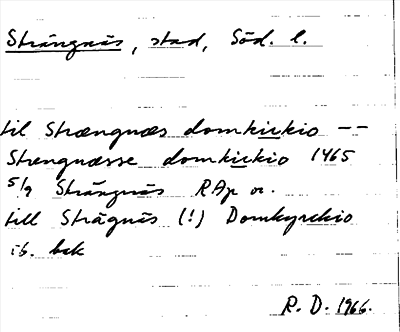 Strängnäs, stad, Söd. l.
til Strængnæs domkirkio --
Strengnæsse domkirkio 1465
5/9 Strängnäs RAp or.
till Strägnäs (!) Domkyrckio
ib. bak
R. D. 1966.